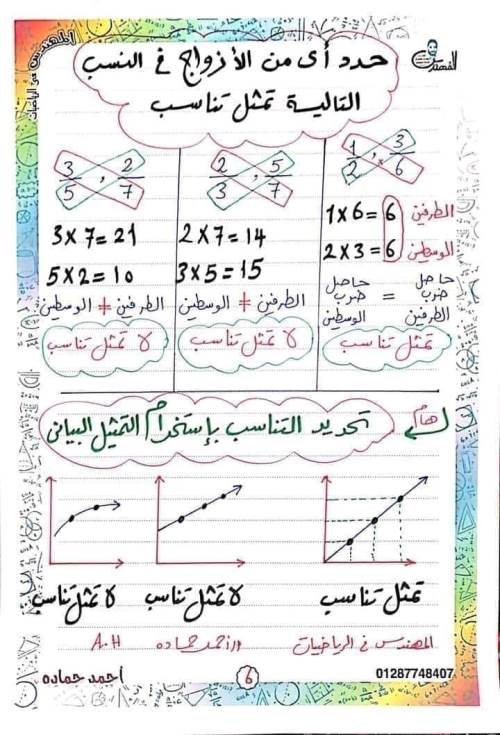 المهندس في الرياضيات
المهندس
حدد أى من الأزواج في النسب
التالية تمثل تناسب
1/2 , 3/6
الطرفين 1x6=6
الوسطين 2x3=6
حاصل ضرب الطرفين = حاصل ضرب الوسطين
تمثل تناسب
2/3 , 5/7
2x7=14
3x5=15
الطرفين ≠ الوسطين
لا تمثل تناسب
3/5 , 2/7
3x7=21
5x2=10
الطرفين ≠ الوسطين
لا تمثل تناسب
هام
تحديد التناسب بإستخدام التمثيل البيانى
تمثل تناسب
لا تمثل تناسب
لا تمثل تناسب
المهندس في الرياضيات
أ/أحمد حماده
A.H
01287748407
6
أحمد حماده